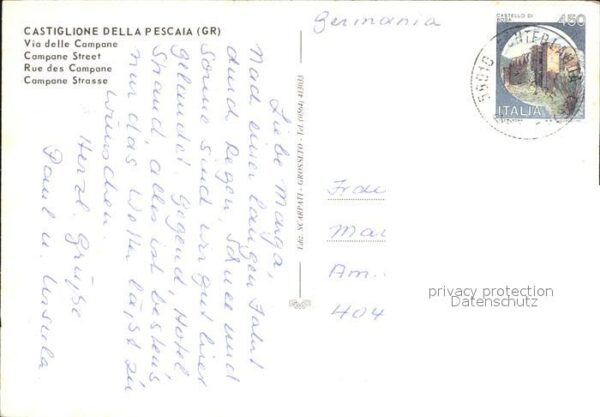 CASTIGLIONE DELLA PESCAIA (GR)
Via delle Campane
Campane Street
Rue des Campane
Campane Strasse
Liebe Marga,
Nach einer langen Fahrt
durch Regen, Schnee und
Sonne sind wir gut hier
gelandet. Gegend, Hotel
Strand, alles ist bestens,
nur das Wetter läßt zu
wünschen.
Herzl. Grüße
Paul u. Ursula.
Ediz. SCARPATI - GROSSETO - Tel. (0564) 413033
Germania
CASTELLO DI
450
ITALIA
58010
Frau
Mar
Am.
404
privacy protection
Datenschutz